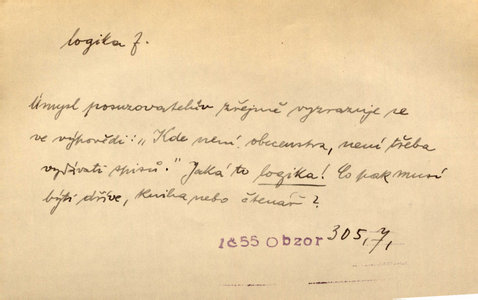 logika f.
Úmysl posuzovatelův zřejmě vyzrazuje se
ve výpovědi: „Kde není obecenstva, není třeba
vydávati spisů." Jaká to logika! Co pak musí
býti dříve, kniha nebo čtenář?
1855 Obzor 305, 7,